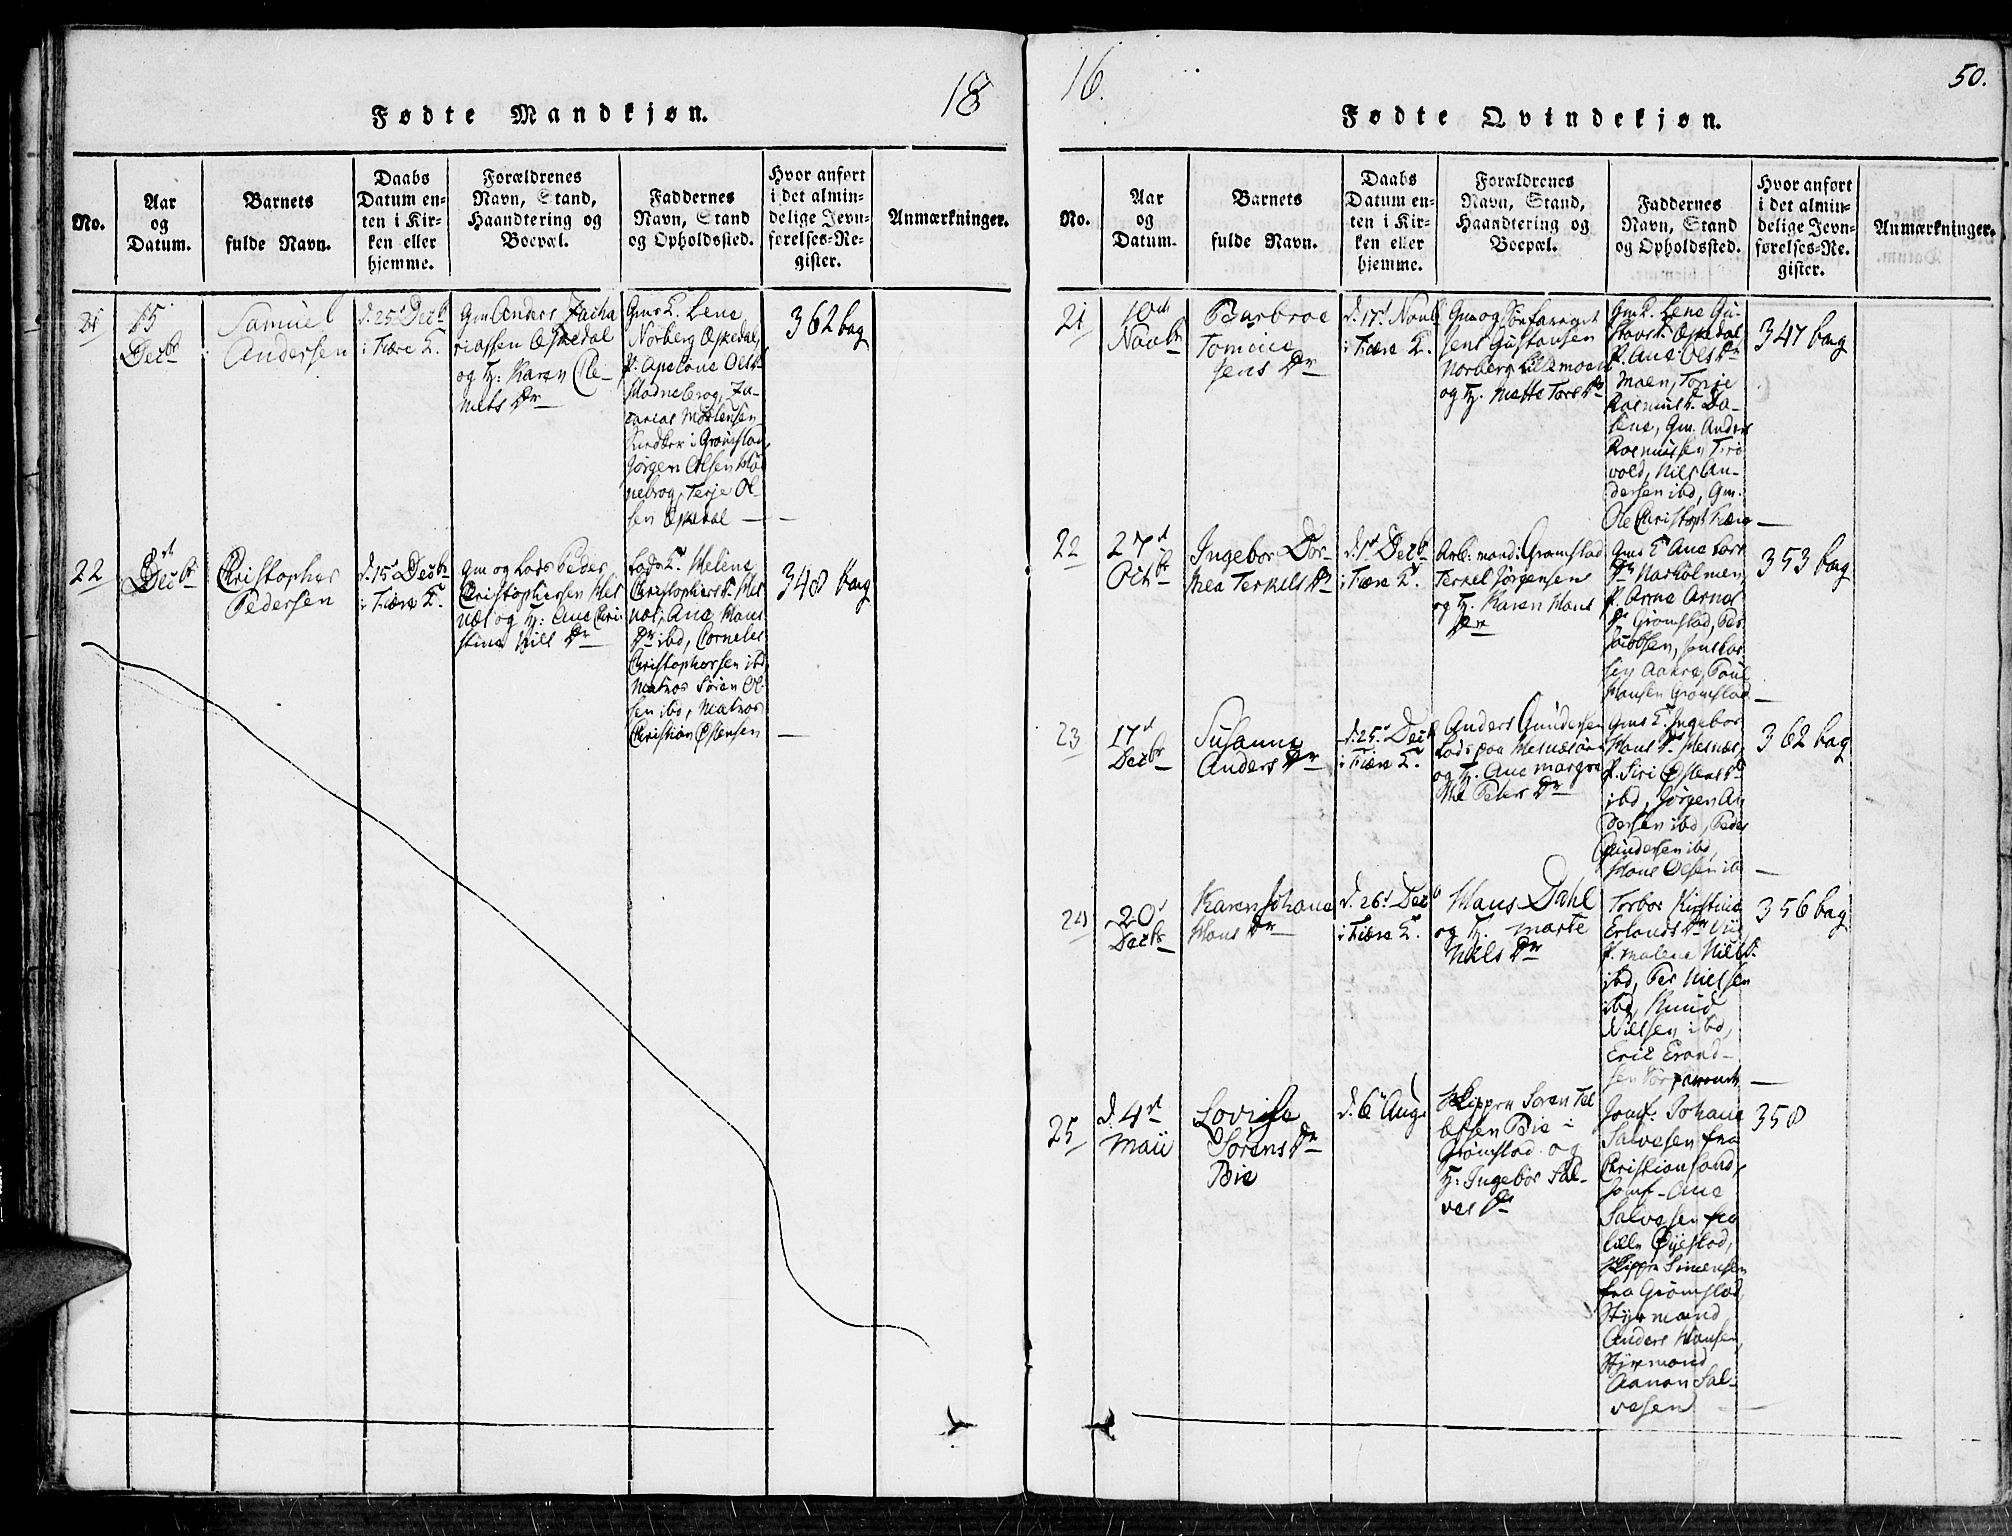 18
Fødte Mandkjøn.
No.
Aar
og
Datum.
Barnets
fulde Navn.
Daabs
Datum en-
ten i Kir-
ken eller
hjemme.
Forældrenes
Navn, Stand,
Haandtering og
Boepæl.
Faddernes
Navn, Stand
og Opholdssted.
Hvor anført
i det almin-
delige Jevn-
førelses-Re-
gister.
Anmærkninger.
21
15
Decbr
Samuel
Andersen
d. 25d Decb
i Fiære K.
Gm Anders Zacha
riassen Eskedal
og H: Karen Cle-
mets Dr
Gms K. Lene
Norberg Eskedal,
Olsen
Jørgen Olsen
nebrog, Terje Ol-
sen Eskedal
362 bag
22
8d
Decbr
Christopher
Pedersen
d. 15d Decbr
i Fiære K.
Gm og Lods Peder
Christophersen Hes
næs og H: Ane Chri
stine Nills Dr
Lods K. Helene
Christophers D. Hes
næs, Ane Hans
Dr ibd, Cornelius
Christophersen ibd
Matros Søren Ol-
sen ibd, Matros
Christian Østensen
348 bag
16.
50.
Fødte Qvindekjøn.
No.
Aar
og
Datum.
Barnets
fulde Navn.
Daabs
Datum en-
ten i Kir-
ken eller
hjemme.
Forældrenes
Navn, Stand,
Haandtering og
Boepæl.
Faddernes
Navn, Stand
og Opholdssted.
Hvor anført
i det almin-
delige Jevn-
førelses-Re-
gister.
Anmærkninger.
21
10d
Novbr
Barbroe
Tomine
Jens Dr
d. 17d Novb
i Fiære K.
Gm og
Jens Gustavsen
Norberg Lillemoen
og H. Mette Tores Dr
Gm K. Lene Gu-
stavs D. Eskedal
P. Ane Ols Dr
Moen, Terje
Rasmus
lene, Gm. Anders
Rasmussen Tro
vold, Nils An-
dersen ibd, Gm.
Ole Christoph Fiære
347 bag
22
27d
Octbr
Ingebor Dor-
thea Terkels Dr
d. 1d Decbr
i Fiære K.
Arb: mand i Grømstad
Terkel Jørgensen
og H. Karen Hans
Dr
Gms K. Ane Lars
Dr Narholmen,
P. Anne Arnes
Dr Grømstad, Per
Jacobsen, Jens Lar-
sen Aakre, Poul
Hansen Grømstad
353 bag
23
17d
Decbr
Susanne
Anders Dr
d. 25d Decb
i Fiære K.
Anders Gundersen
Lods paa Hesnæsøen
og H. Ane Margre
the Peders Dr
Gms K. Ingebor
Hans Dr Hesnæs,
P. Siri Østens Dr
ibd, Jørgen An
dersen ibd, Peder
Gundersen ibd,
Hans Olsen ibd
362 bag
24
20d
Decbr
Karen Johane
Hans Dr
d. 26d Decb
i Fiære K.
Hans Dahl
og H. Marte
Nils Dr
Torbor Kirstine
Erlands Dr Vig
P. Malene Nils D.
ibd, Per Nielsen
ibd, Knud
Nielsen ibd,
Eric Erand-
sen
356 bag
25
d. 4d
Maii
Lovise
Sørens Dr
Bie
d. 6 Aug.
Skipper Søren Tel
lefsen Bie i
Grømstad og
H: Ingebor Sal-
ves Dr
Jomf: Johane
Salvesen fra
Christiansand,
Jomf- Ane
Salvesen fra
Lille Øyestad,
Skipper Simensen
fra Grømstad
Styrmand
Anders Hansen,
Styrmand
Aanon Sal-
vesen
358